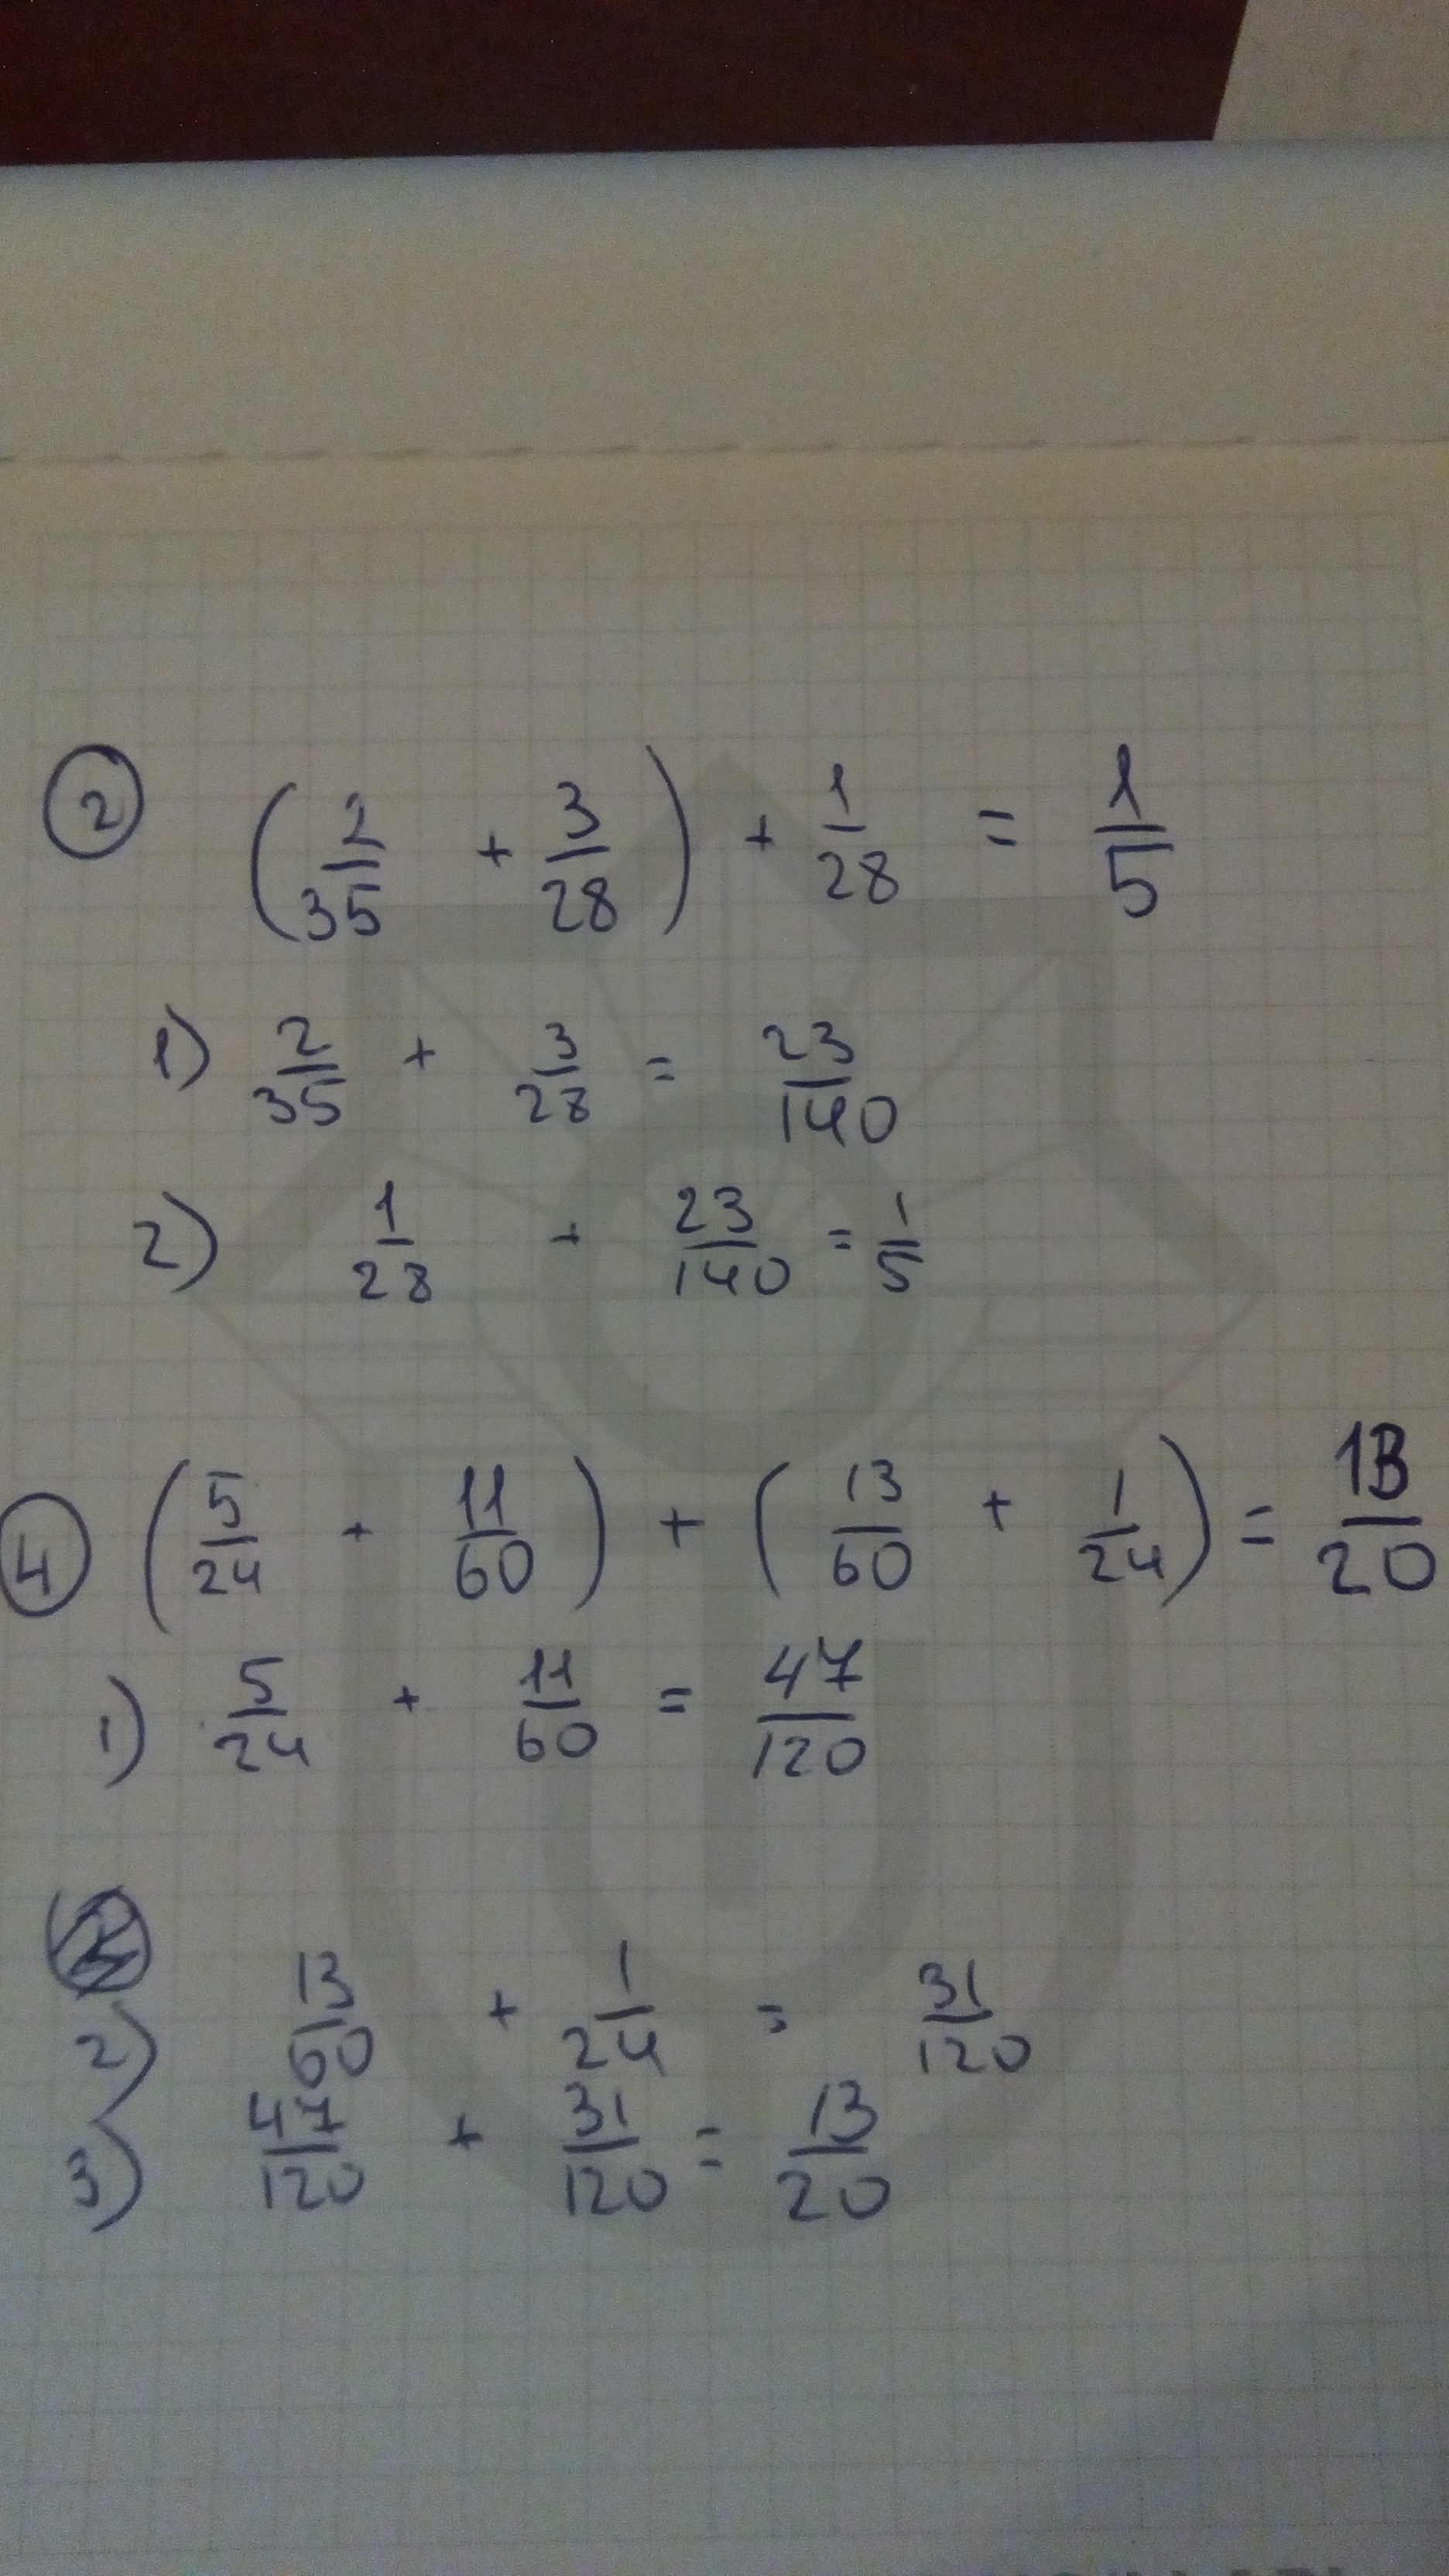 2 (2/35 + 3/28) + 1/28 = 1/5
1) 2/35 + 3/28 = 23/140
2) 1/28 + 23/140 = 1/5
4 (5/24 + 11/60) + (13/60 + 1/24) = 13/20
1) 5/24 + 11/60 = 47/120
2) 13/60 + 1/24 = 31/120
3) 47/120 + 31/120 = 13/20